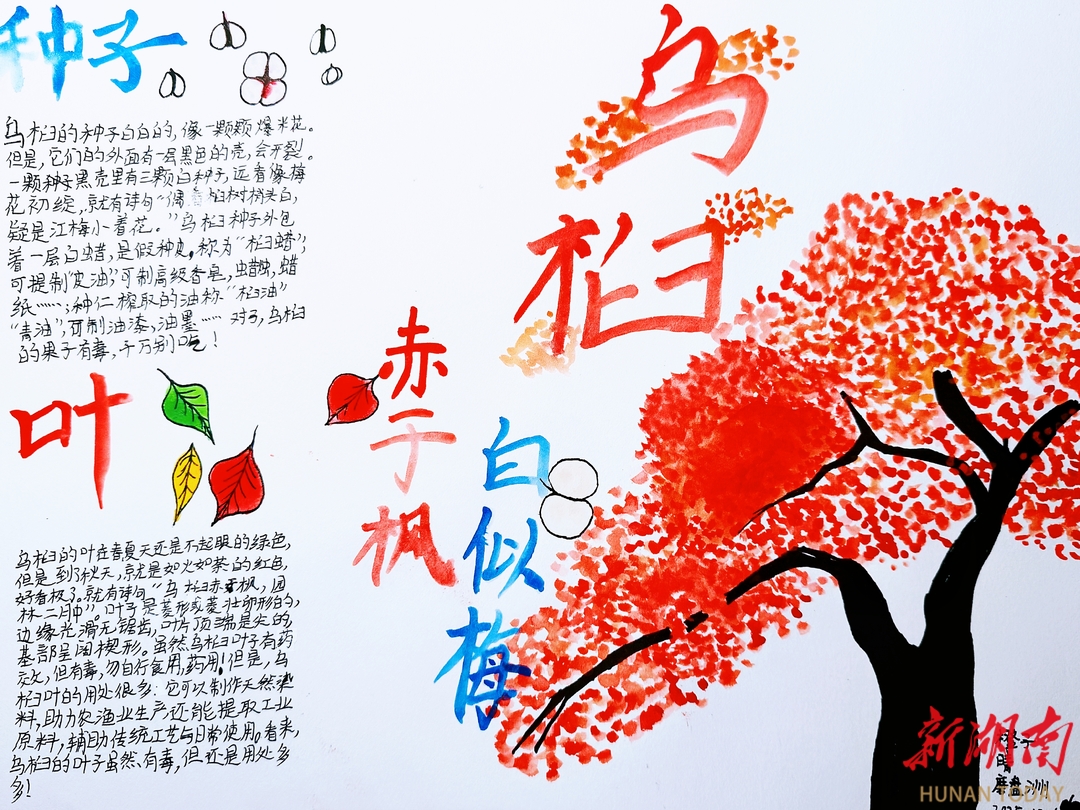 种子
乌桕的种子白白的，像一颗颗爆米花。
但是，它们的外面有一层黑色的壳，会开裂。
一颗种子黑壳里有三颗白种子，远看像梅
花初绽，就有诗句“偶看桕树梢头白，
疑是江梅小着花。”乌桕种子外包
着一层白蜡，是假种皮，称为“桕蜡”，
可提制“皮油”，可制高级香皂，蜡烛，蜡
纸……；种仁榨取的油称“桕油”
“青油”，可制油漆，油墨……对了，乌桕
的果子有毒，千万别吃！
叶
乌桕的叶在春夏天还是不起眼的绿色，
但是到了秋天，就是如火如荼的红色，
好看极了。就有诗句“乌桕赤于枫，园
林二月中”，叶子是菱形或菱状卵形的，
边缘光滑无锯齿，叶片顶端是尖的
基部呈阔楔形。虽然乌桕叶子有药
效，但有毒，勿自行食用，药用！但是，乌
桕叶的用处很多：它可以制作天然染
料，助力农渔业生产还能提取工业
原料，辅助传统工艺与日常使用。看来，
乌桕的叶子虽然有毒，但还是用处多
多！
乌桕
赤于枫
白似梅
橙子
磨盘洲
新湖南
HUNAN TODAY